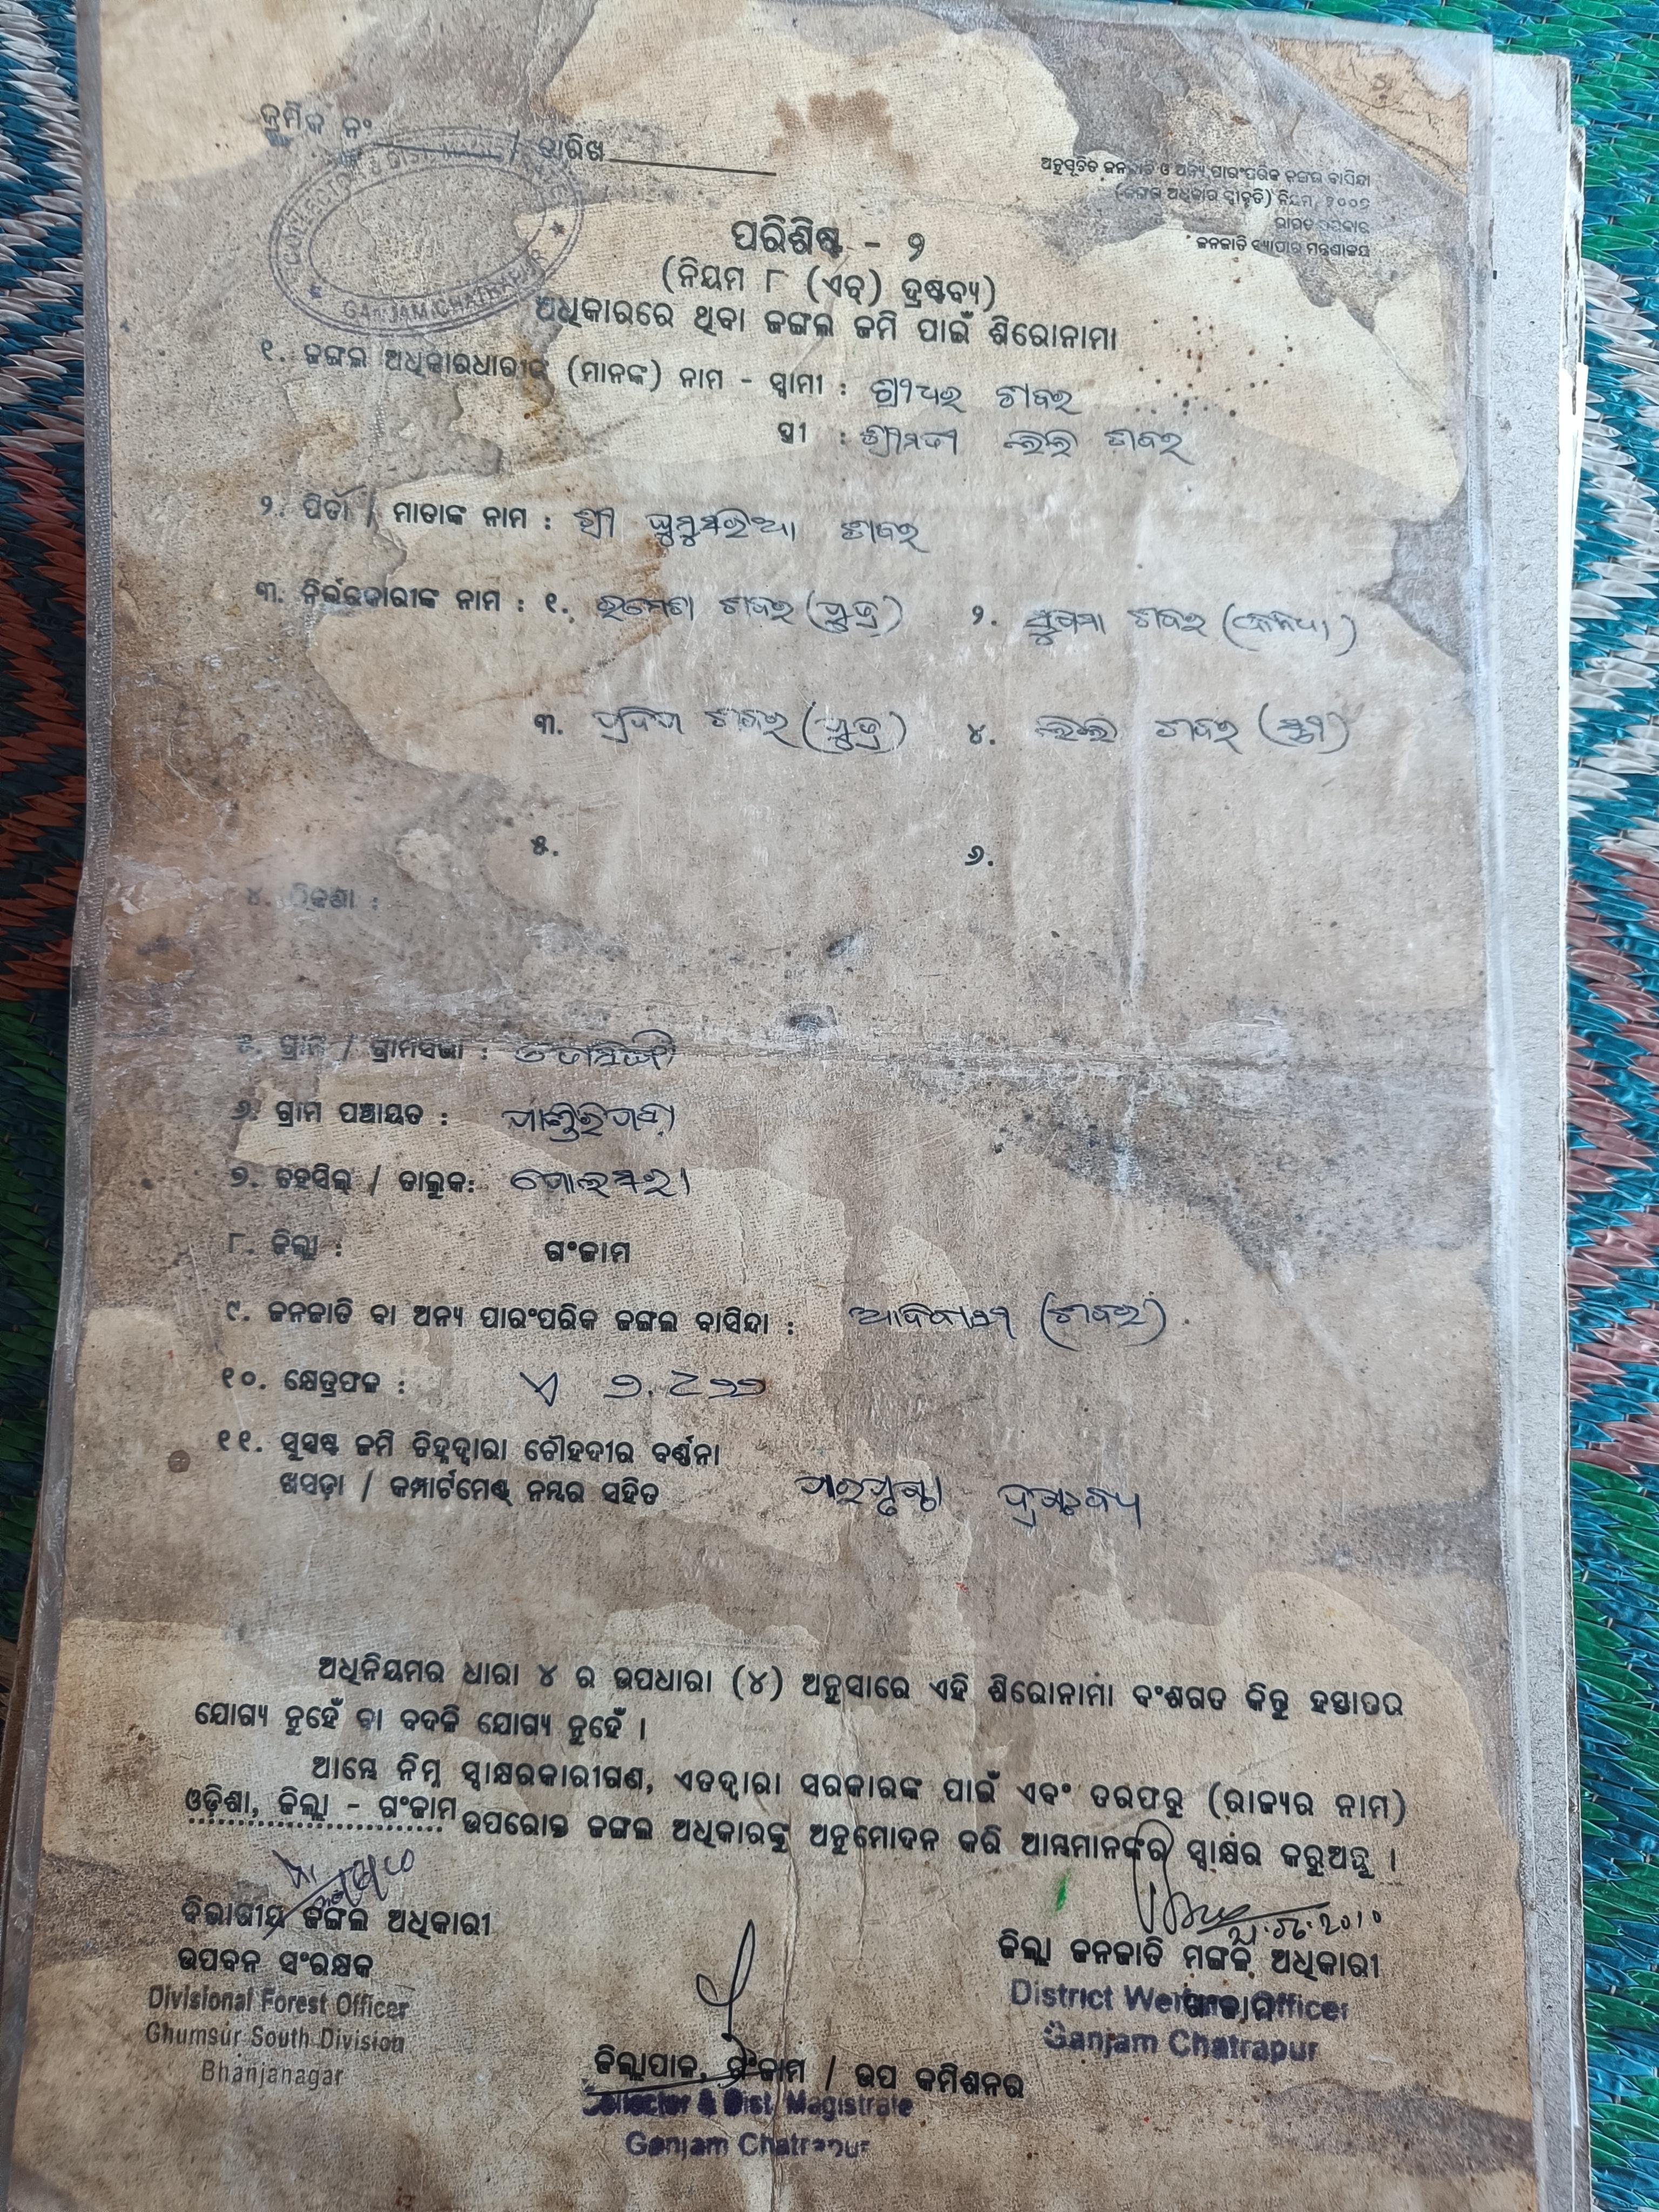 କ୍ରମିକ ନଂ / ତାରିଖ
COLLECTOR & DIST. GANJAM CHATRAPUR
ଅନୁସୂଚିତ ଜନଜାତି ଓ ଅନ୍ୟ ପାରଂପରିକ ଜଙ୍ଗଲ ବାସିନ୍ଦା
(ଜଙ୍ଗଲ ଅଧିକାର ସ୍ୱୀକୃତି) ନିୟମ, ୨୦୦୭
ଭାରତ ସରକାର
ଜନଜାତି ବ୍ୟାପାର ମନ୍ତ୍ରଣାଳୟ
ପରିଶିଷ୍ଟ - ୨
(ନିୟମ ୮ (ଏଚ୍) ଦ୍ରଷ୍ଟବ୍ୟ)
ଅଧିକାରରେ ଥିବା ଜଙ୍ଗଲ ଜମି ପାଇଁ ଶିରୋନାମା
୧. ଜଙ୍ଗଲ ଅଧିକାରଧାରୀଙ୍କ (ମାନଙ୍କ) ନାମ - ସ୍ୱାମୀ : ଶ୍ରୀଧର ଶବର
ସ୍ତ୍ରୀ : ଶ୍ରୀମତୀ ଲଲି ଶବର
୨. ପିତା / ମାତାଙ୍କ ନାମ : ଶ୍ରୀ ଘୁମୁସରିଆ ଶବର
୩. ନିର୍ଭରକାରୀଙ୍କ ନାମ : ୧. ରମେଶ ଶବର (ପୁତ୍ର) ୨. ସୁଷମା ଶବର (କନ୍ୟା)
୩. ପ୍ରଦିପ ଶବର (ପୁତ୍ର) ୪. ଲଲି ଶବର (ସ୍ତ୍ରୀ)
୫. ୬.
୪. ଠିକଣା :
୫. ଗ୍ରାମ / ଗ୍ରାମସଭା :
୬. ଗ୍ରାମ ପଞ୍ଚାୟତ :
୭. ତହସିଲ୍ / ତାଲୁକ: ସୋରଡ଼ା
୮. ଜିଲ୍ଲା : ଗଂଜାମ
୯. ଜନଜାତି ବା ଅନ୍ୟ ପାରଂପରିକ ଜଙ୍ଗଲ ବାସିନ୍ଦା : ଆଦିବାସୀ (ଶବର)
୧୦. କ୍ଷେତ୍ରଫଳ : ଏ
୧୧. ସୁସ୍ପଷ୍ଟ ଜମି ଚିହ୍ନଦ୍ୱାରା ଚୌହଦୀର ବର୍ଣ୍ଣନା
ଖସଡ଼ା / କମ୍ପାର୍ଟମେଣ୍ଟ ନମ୍ବର ସହିତ ପରପୃଷ୍ଠା ଦ୍ରଷ୍ଟବ୍ୟ
ଅଧିନିୟମର ଧାରା ୪ ର ଉପଧାରା (୪) ଅନୁସାରେ ଏହି ଶିରୋନାମା ବଂଶଗତ କିନ୍ତୁ ହସ୍ତାନ୍ତର
ଯୋଗ୍ୟ ନୁହେଁ ବା ବଦଳି ଯୋଗ୍ୟ ନୁହେଁ ।
ଆମ୍ଭେ ନିମ୍ନ ସ୍ୱାକ୍ଷରକାରୀଗଣ, ଏତଦ୍ୱାରା ସରକାରଙ୍କ ପାଇଁ ଏବଂ ତରଫରୁ (ରାଜ୍ୟର ନାମ)
ଓଡ଼ିଶା, ଜିଲ୍ଲା - ଗଂଜାମ ଉପରୋକ୍ତ ଜଙ୍ଗଲ ଅଧିକାରଙ୍କୁ ଅନୁମୋଦନ କରି ଆମ୍ଭମାନଙ୍କର ସ୍ୱାକ୍ଷର କରୁଅଛୁ ।
ବିଭାଗୀୟ ଜଙ୍ଗଲ ଅଧିକାରୀ
ଉପବନ ସଂରକ୍ଷକ
Divisional Forest Officer
Ghumsur South Division
Bhanjanagar
ଜିଲ୍ଲାପାଳ, ଗଂଜାମ / ଉପ କମିଶନର
Collector & Dist. Magistrate
Ganjam Chatrapur
ଜିଲ୍ଲା ଜନଜାତି ମଙ୍ଗଳ ଅଧିକାରୀ
ଗଂଜାମ
District Welfare Officer
Ganjam Chatrapur